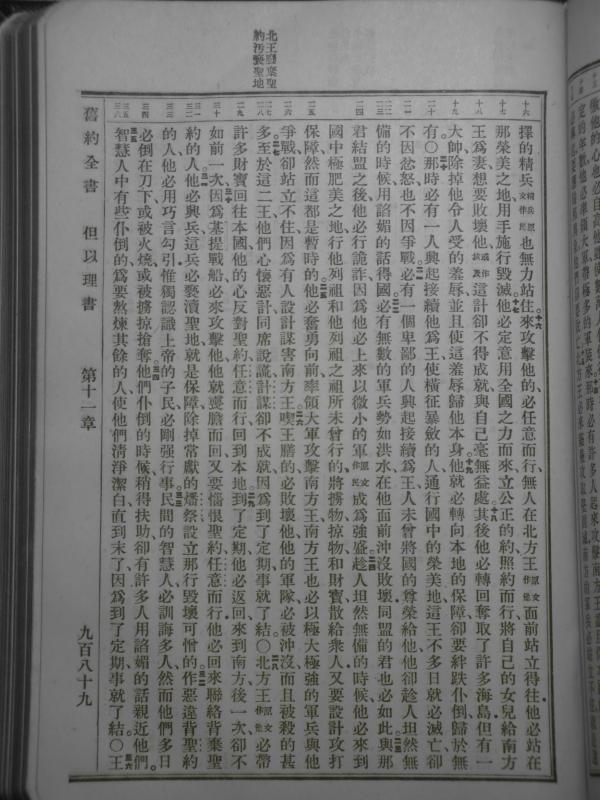 北王廢棄聖
約汚褻聖地
擇的精兵精兵原文作民也無力站住來攻擊他的必任意而行無人在北方王原文作他面前站立得住他必站在
那榮美之地用手施行毀滅他必定意用全國之力而來立公正的約照約而行將自己的女兒給南方
王爲妻想要敗壞他或作埃及這計卻不得成就與自己毫無益處其後他必轉回奪取了許多海島但有一
大帥除掉他令人受的羞辱並且使這羞辱歸他本身他就必轉向本地的保障卻要絆跌仆倒歸於無
有○那時必有一人興起接續他爲王使橫征暴斂的人通行國中的榮美地這王不多日就必滅亡卻
不因忿怒也不因爭戰必有一個卑鄙的人興起接續爲王人未曾將國的尊榮給他他卻趁人坦然無
備的時候用諂媚的話得國必有無數的軍兵勢如洪水在他面前沖沒敗壞同盟的君也必如此與那
君結盟之後他必行詭詐因爲他必上來以微小的軍原文作民成爲強盛趁人坦然無備的時候他必來到
國中極肥美之地行他列祖和他列祖之祖所未曾行的將擄物掠物和財寶散給衆人又要設計攻打
保障然而這都是暫時的他必奮勇向前率領大軍攻擊南方王南方王也必以極大極強的軍兵與他
爭戰卻站立不住因爲有人設計謀害南方王喫王膳的必敗壞他他的軍隊必被沖沒而且被殺的甚
多至於這二王他們心懷惡計同席說謊計謀卻不成就因爲到了定期事就了結○北方王原文作他必帶
許多財寶回往本國他的心反對聖約任意而行回到本地到了定期他必返回來到南方後一次卻不
如前一次因爲基提戰船必來攻擊他他就喪膽而回又要惱恨聖約任意而行他必回來聯絡背棄聖
約的人他必興兵這兵必褻瀆聖地就是保障除掉常獻的燔祭設立那行毀壞可憎的作惡違背聖約
的人他必用巧言勾引惟獨認識上帝的子民必剛強行事民間的智慧人必訓誨多人然而他們多日
必倒在刀下或被火燒或被擄掠搶奪他們仆倒的時候稍得扶助卻有許多人用諂媚的話親近他們
智慧人中有些仆倒的爲要熬煉其餘的人使他們清淨潔白直到末了因爲到了定期事就了結○王
舊約全書 但以理書 第十一章 九百八十九